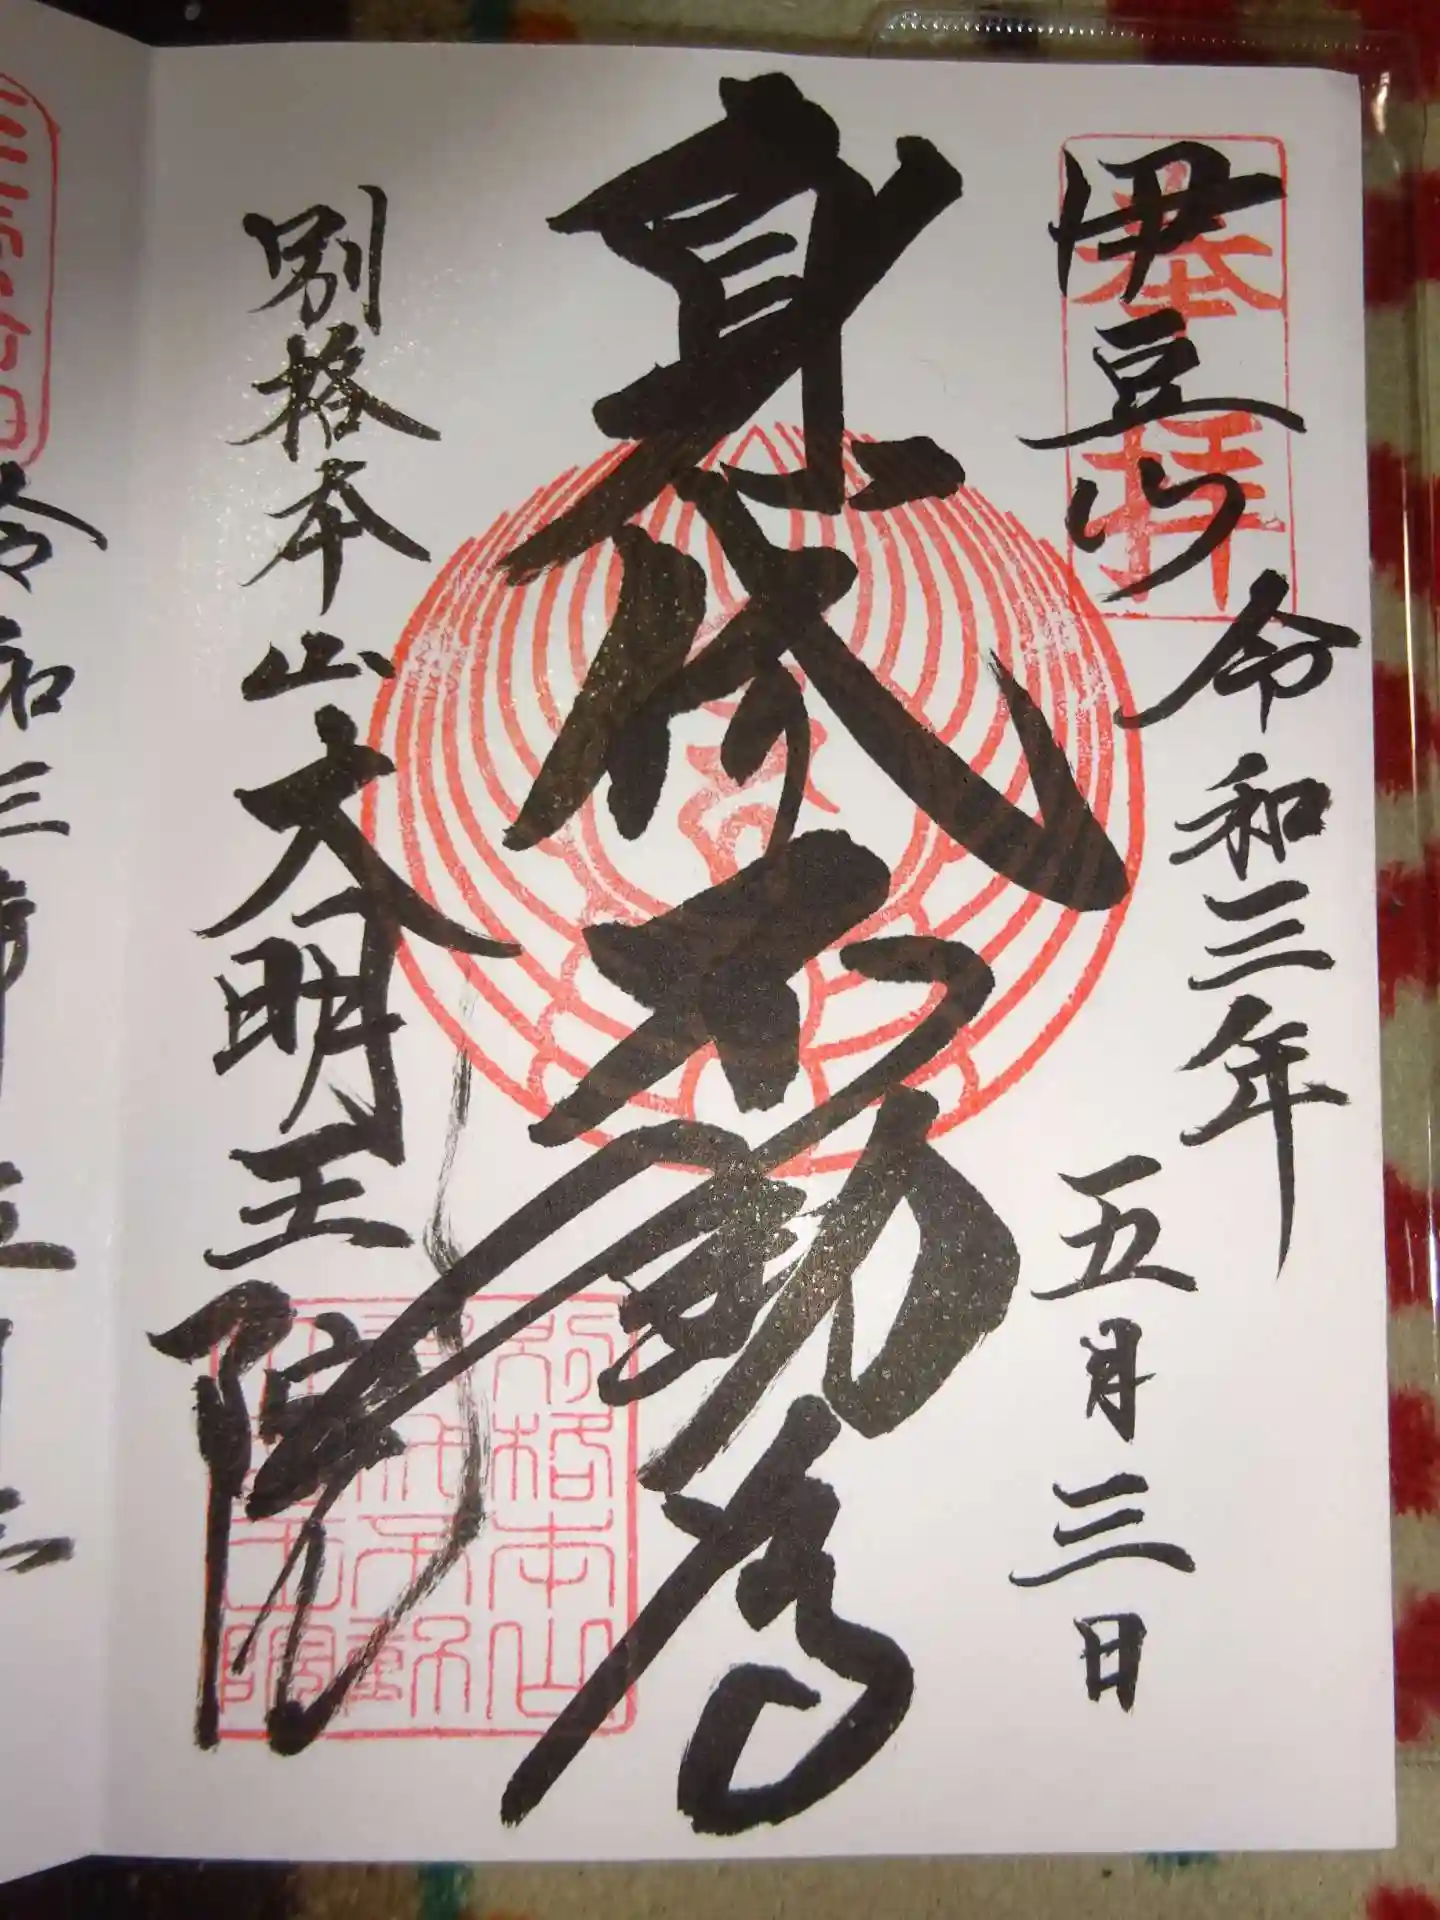 奉拝
伊豆山
令和三年
五月三日
身代不動尊
別格本山大明王院
別格本山
身代不動
大明王院
令和三年五月三